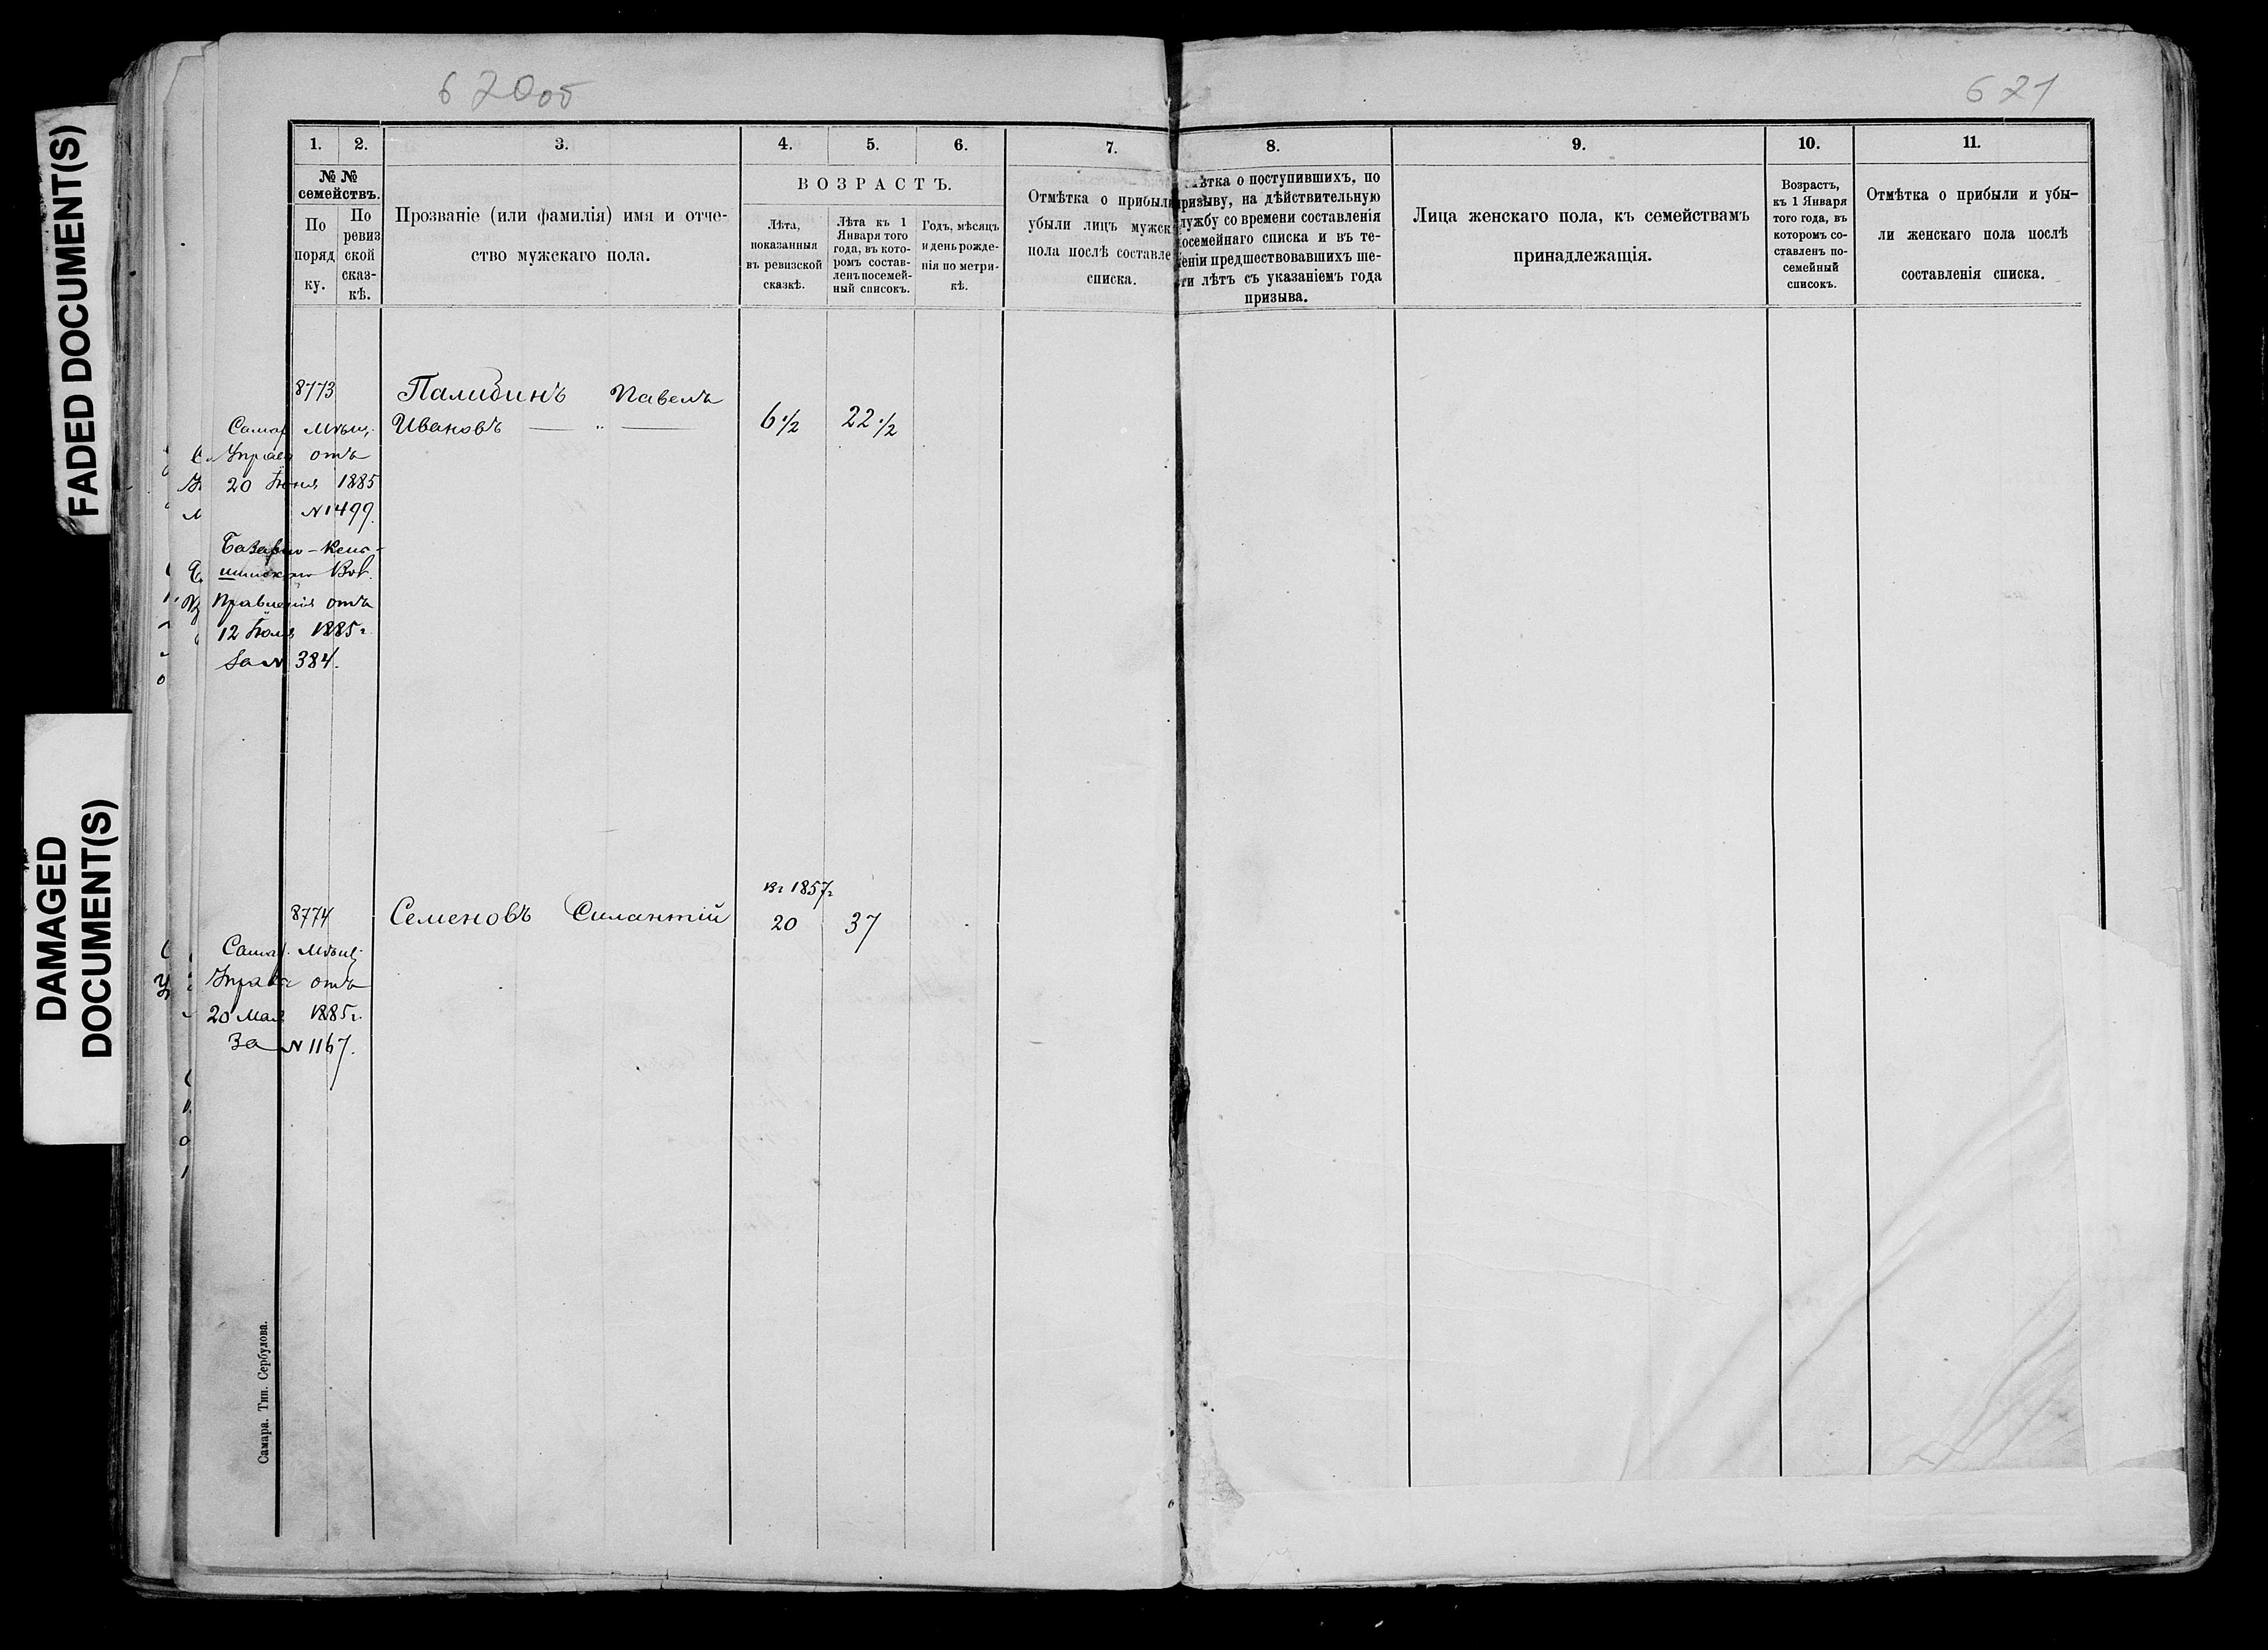 FADED DOCUMENT(S)
DAMAGED
DOCUMENT(S)
620об
621
1.
2.
3.
4.
5.
6.
7.
8.
9.
10.
11.
№ №
семействъ.
По
поряд
ку.
По
ревиз
ской
сказ-
кѣ.
Прозваніе (или фамилія) имя и отче-
ство мужскаго пола.
ВОЗРАСТЪ.
Лѣта,
показанныя
въ ревизской
сказкѣ.
Лѣта къ 1
Января того
года, въ кото-
ромъ состав-
ленъ посемей-
ный списокъ.
Годъ, мѣсяцъ
и день рожде-
нія по метри-
кѣ.
Отмѣтка о прибыли
убыли лицъ мужск
пола послѣ составле
списка.
ѣтка о поступившихъ, по
призыву, на дѣйствительную
лужбу со времени составленія
посемейнаго списка и въ те-
еніи предшествовавшихъ ше-
ти лѣтъ съ указаніемъ года
призыва.
Лица женскаго пола, къ семействамъ
принадлежащія.
Возрастъ,
къ 1 Января
того года, въ
которомъ со-
ставленъ по-
семейный
списокъ.
Отмѣтка о прибыли и убы-
ли женскаго пола послѣ
составленія списка.
8773
Палибинъ Павелъ
Ивановъ — „ — 6 1/2 22 1/2
Самар Мѣщ.
Управа отъ
20 Іюня 1885
N 1499.
Правленія отъ
12 Іюля 1885 г
За N 384.
въ 1857 г
8774 Семеновъ Силантій 20 37
Самар. Мѣщ.
Управа отъ
20 Мая 1885 г.
За N 1167.
Самара. Тип. Сербулова.